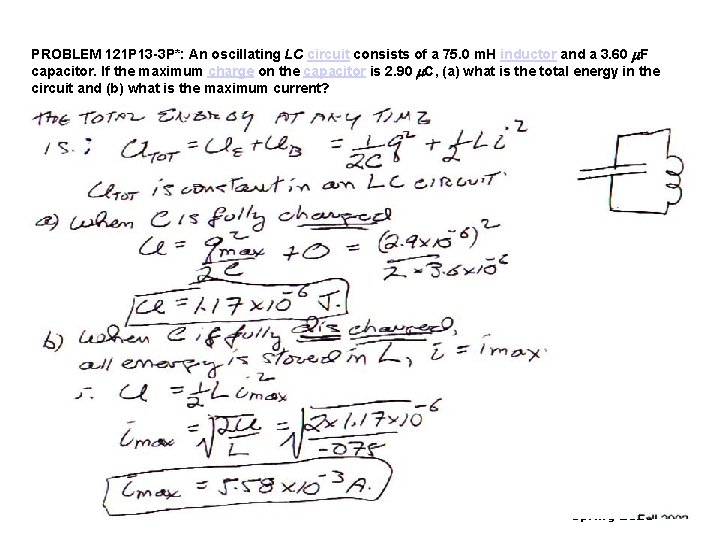 PROBLEM 121 P 13-3 P*: An oscillating LC circuit consists of a 75.0 mH inductor and a 3.60 μF
capacitor. If the maximum charge on the capacitor is 2.90 μC, (a) what is the total energy in the
circuit and (b) what is the maximum current?
THE TOTAL ENERGY AT ANY TIME
IS: U_TOT = U_E + U_B = 1/2C q² + 1/2 L i²
U_TOT is constant in an LC CIRCUIT.
a) When C is fully charged
U = q²max/2C + 0 = (2.9x10⁻⁶)²/2x3.6x10⁻⁶
U = 1.17x10⁻⁶ J.
b) When C is fully discharged,
all energy is stored in L, i = imax.
∴ U = 1/2 L i²max
imax = √(2U/L) = √(2x1.17x10⁻⁶/.075)
imax = 5.58x10⁻³ A.
Fall 2002